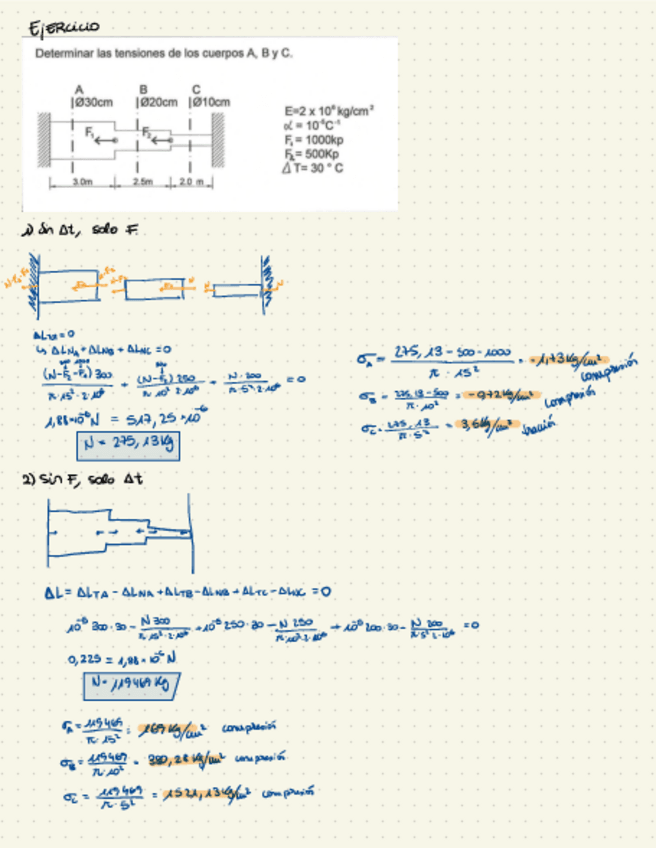 Ejercicio
Determinar las tensiones de los cuerpos A, B y C.
A B C
Ø30cm Ø20cm Ø10cm
F₁ F₂
3.0m 2.5m 2.0 m
E=2 x 10⁶ kg/cm²
α = 10⁻⁵C⁻¹
F₁= 1000kp
F₂= 500Kp
ΔT= 30 ° C
1) Sin Δt, solo F.
↳ ΔLNA + ΔLNB + ΔLNC = 0
(N-F₂-F₁) 300 / π·15²·2·10⁶ + (N-F₂) 250 / π·10²·2·10⁶ + N·200 / π·5²·2·10⁶ = 0
1,88·10⁻⁶ N = 517,25·10⁻⁶
N = 275,13 kg
σA = 275,13 - 500 - 1000 / π · 15² = -1,73 kg/cm² compresión
σB = 275,13 - 500 / π·10² = -0,72 kg/cm² compresión
σC = 275,13 / π·5² = 3,5 kg/cm² tracción
2) Sin F, solo Δt
ΔL = ΔLTA - ΔLNA + ΔLTB - ΔLNB + ΔLTC - ΔLNC = 0
10⁻⁵·300·30 - N 300 / π·15²·2·10⁶ + 10⁻⁵·250·30 - N 250 / π·10²·2·10⁶ + 10⁻⁵·200·30 - N 200 / π·5²·2·10⁶ = 0
0,225 = 1,88·10⁻⁶ N
N = 119469 kg
σA = 119469 / π·15² = 169 kg/cm² compresión
σB = 119469 / π·10² = 380,28 kg/cm² compresión
σC = 119469 / π·5² = 1521,13 kg/cm² compresión